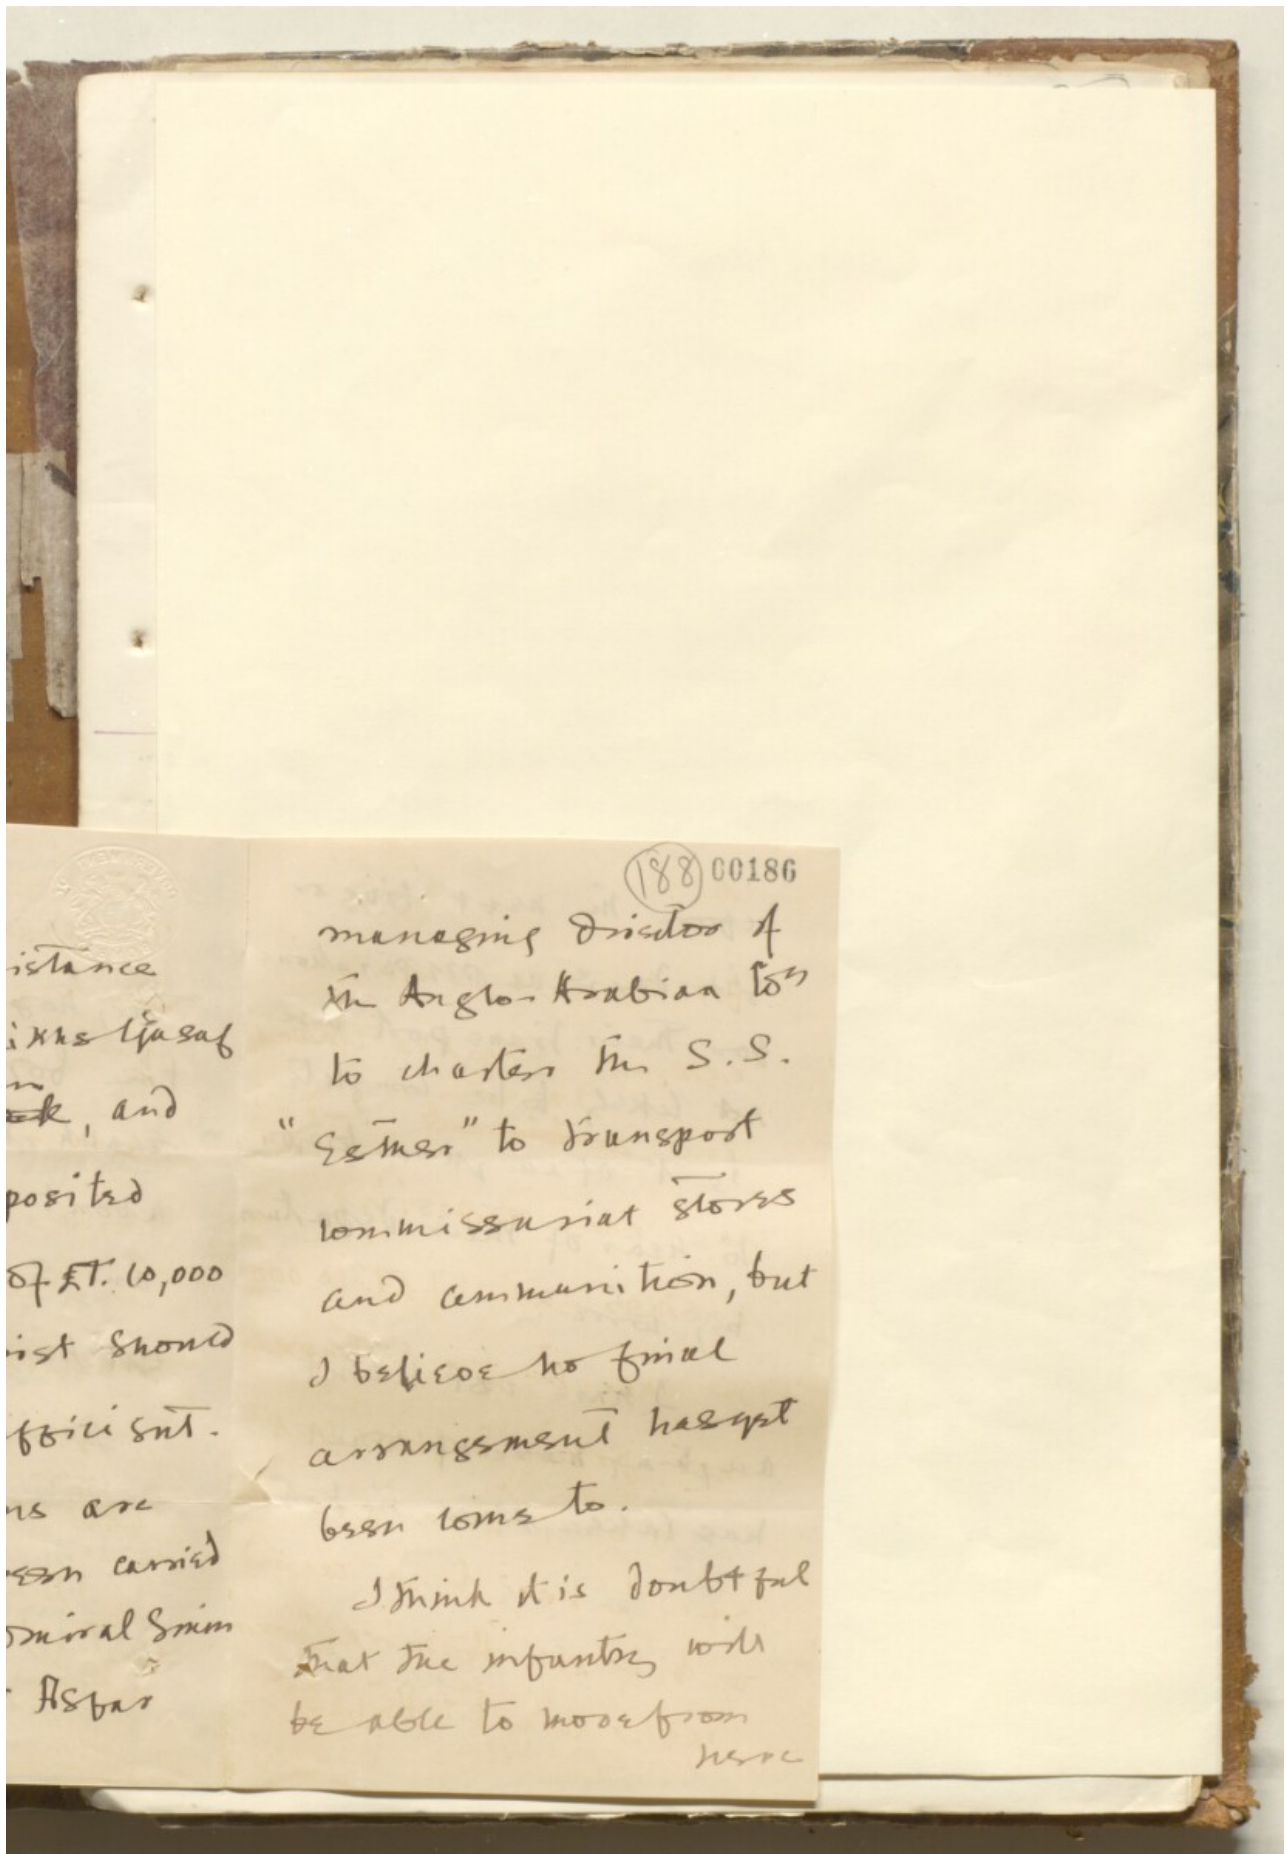 istance
ikhs Yusuf
and
posited
of £T. 10,000
ist should
fficient.
ns are
een carried
dmiral
Asfar
188 00186
managing director of
the Anglo-Arabian Coy
to charter the S.S.
"Esther" to transport
commissariat stores
and ammunition, but
I believe no final
arrangement has yet
been come to.
I think it is doubtful
that the infantry will
be able to move from
here